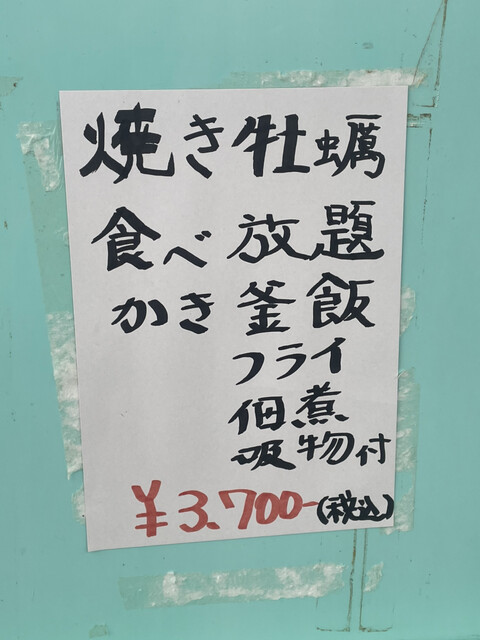 焼き牡蠣
食べ放題
かき釜飯
フライ
佃煮
吸物付
¥3.700-(税込)